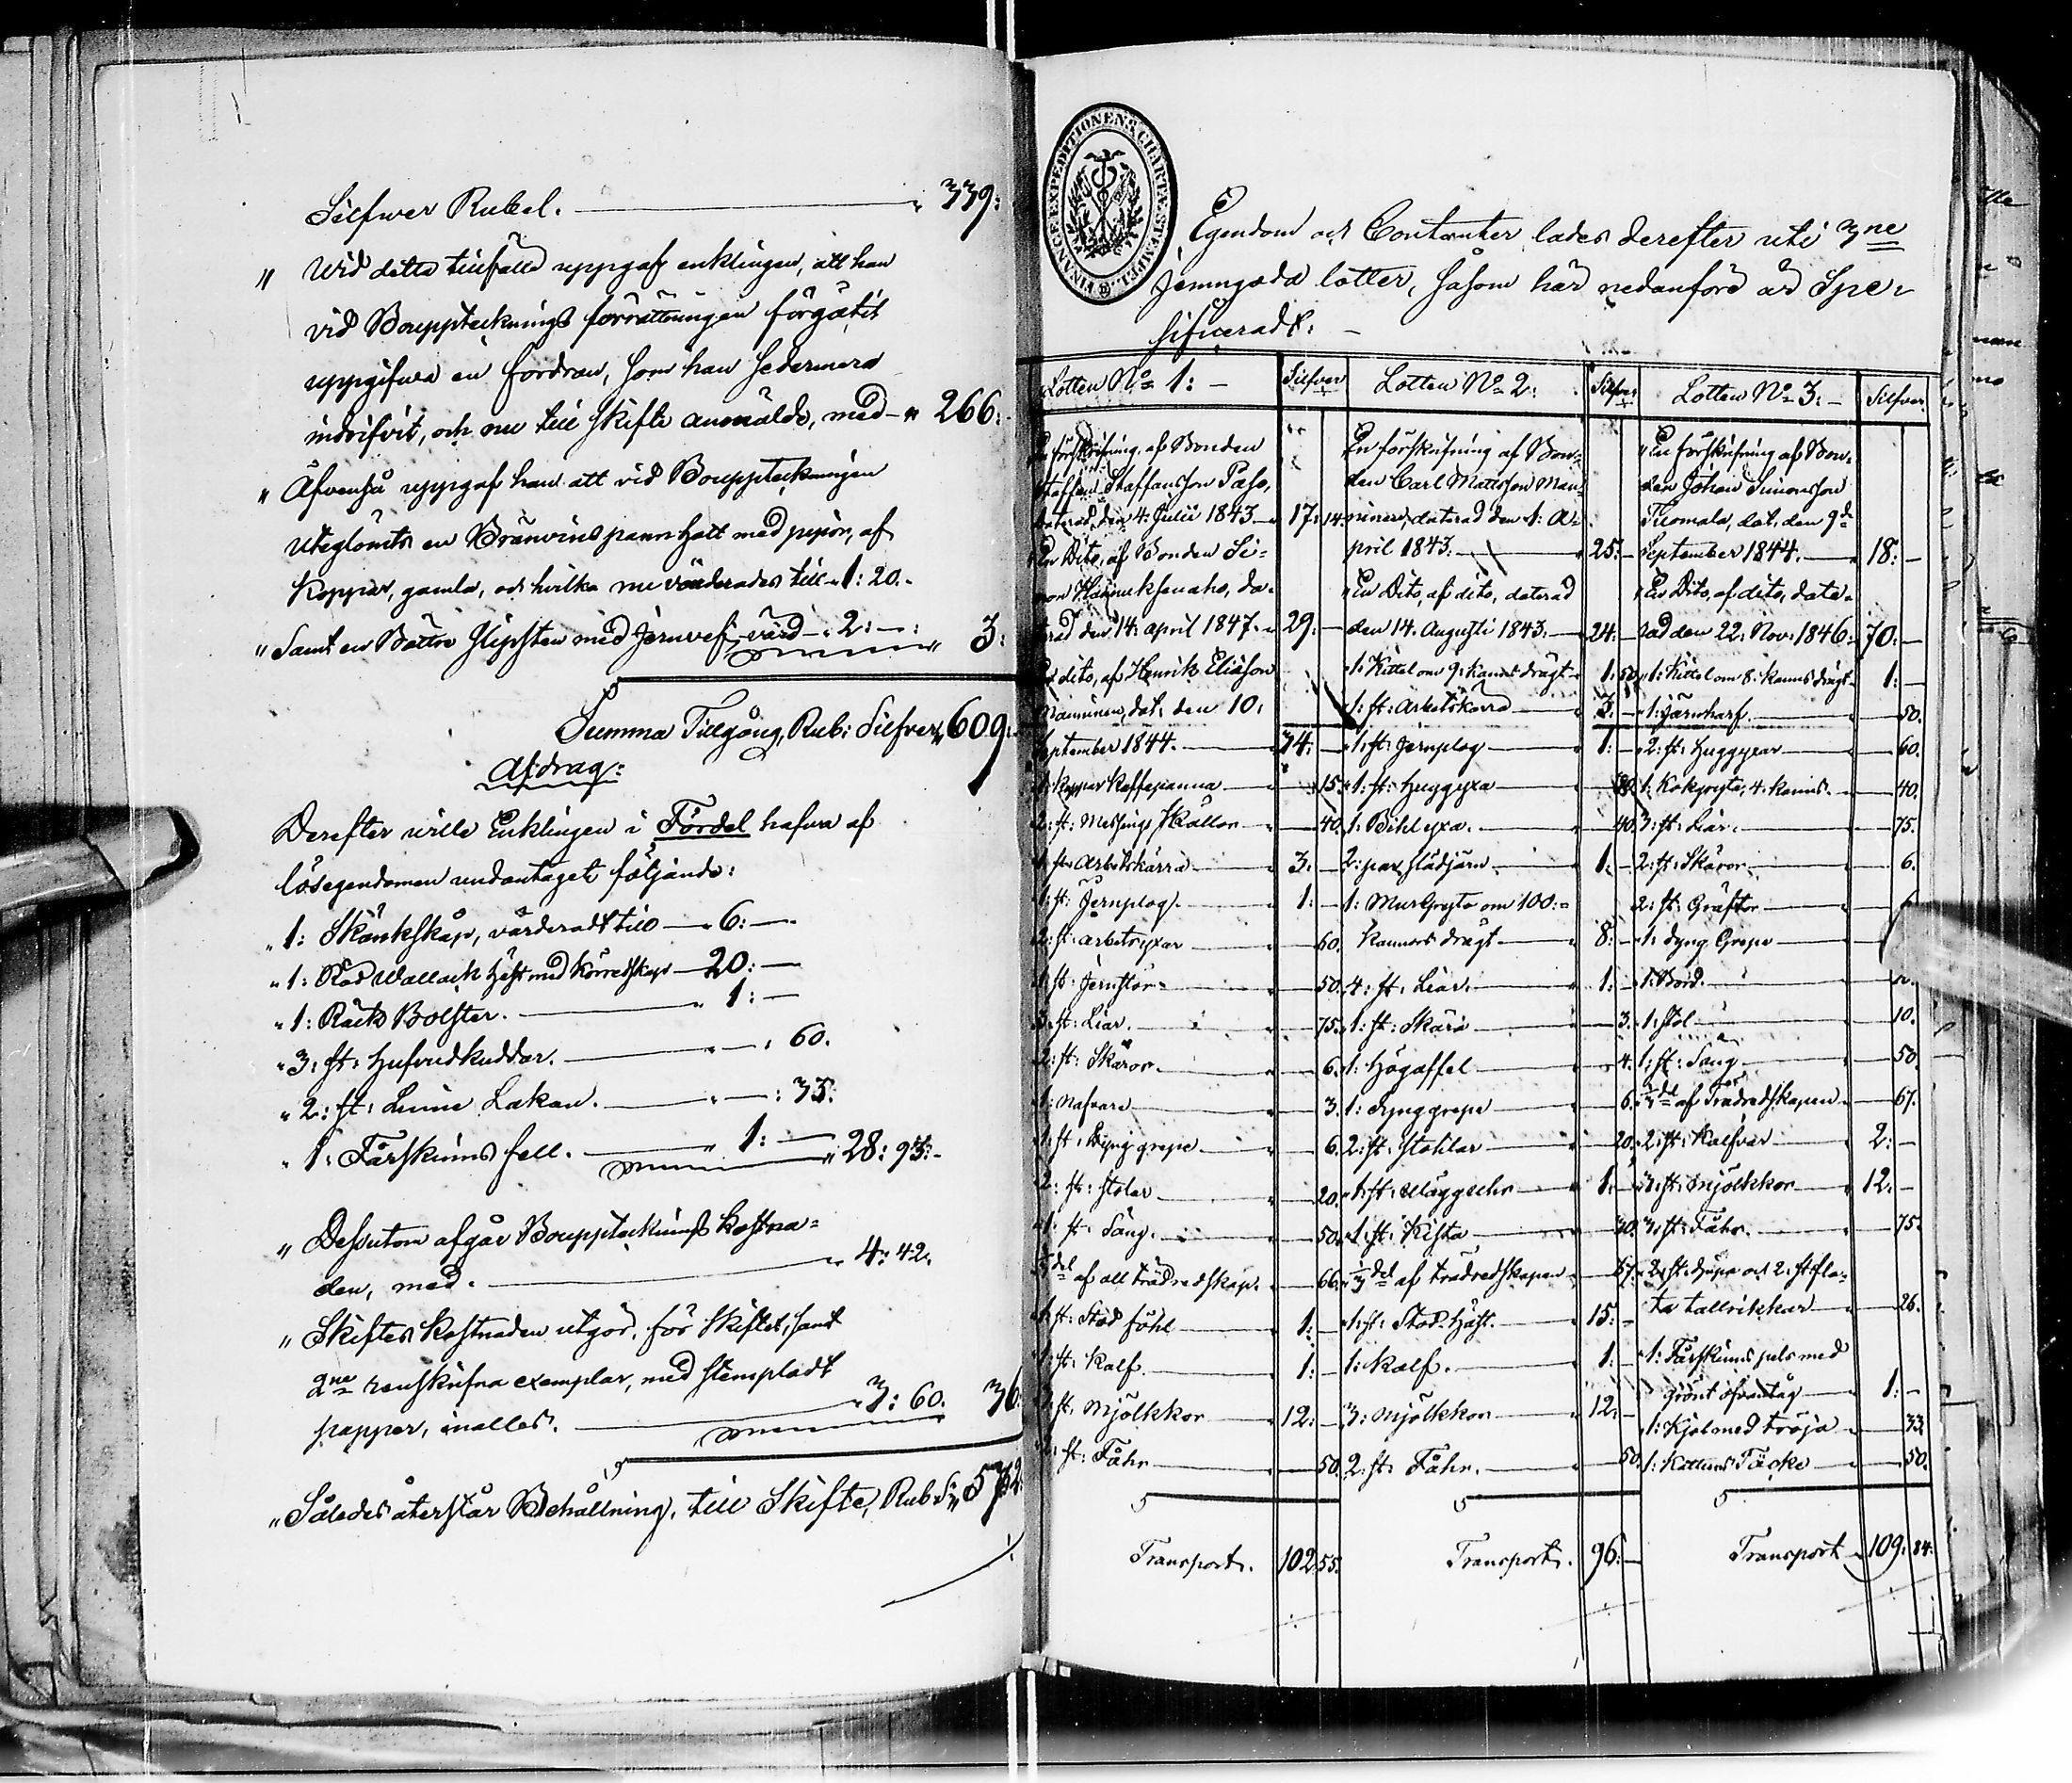 Silfwer Rubel. — " 339:
" Wid detta tillfälle uppgaf enklingen, att han
vid Bouppteknings förrättningen förgätit
uppgifwa en fordran, som han sedermera
indrifvit, och nu till skifte anmälde, med — " 266:
" Äfvenså uppgaf han att vid Boupptekningen
uteglömts en Bränvins pannhatt med pipor, af
Koppar, gamla, och hvilka nu värderades till " 1: 20.
" Samt en Bättre Slipsten med Jernvef, värd — " 2: — " 3:
Summa Tillgång, Rub: Silfver, " 609:
Afdrag:
Derefter wille Enklingen i Fördel hafwa af
lösegendomen undantaget följande:
" 1: Skänkskåp, värderadt till — " 6: —
" 1: Röd Wallach Häst med Körredskap — 20: —
" 1: Räck Bolster. — " 1: —
" 3: st: Hufvudkuddar. — " — : 60.
" 2: st: Linne Lakan. — " — : 33.
" 1: Fårskinns fell. — " 1: — " 28: 93: —
" Dessutom afgår Bouppteknings kostna=
den, med. — " 4: 42.
" Skiftes kostnaden utgör, för Skiftet, samt
2ne renskrifna exemplar, med stempladt
papper, inalles. — " 3: 60. 36:
" Således återstår Behållning, till Skifte, Rub. S. " 572:
FINANCE EXPEDITIONENS CHARTÆ STEMPEL.
Egendom och Contanter lades derefter uti 3ne
Jemngoda lotter, såsom här nedanföre är Spe=
sificeradt: —
Lotten No 1: — Silfver
En förskrifning af Bonden
Staffan Staffansson Paso,
daterad den 4: Julii 1843 — 17: 14.
En Dito, af Bonden Si=
mon Hännuksenaho, da=
terad den 14: april 1847. — 29: —
En dito, af Henrik Eliasson
Manninen, dat: den 10:
September 1844. — 34: —
1: Koppar Kaffepanna — 15.
2: st: Messings Skållor — 40.
1: st: Arbetskärra — 3: —
1: st: Jernplog. — 1: —
2: st: arbetsyxor — 60.
1: st: Jernstör — 50.
3: st: Liar. — 75.
2: st: Skäror — 6.
1: Nafvare — 3.
1: st: Dyng grepe — 6.
2: st: stolar — 20.
1: st: Säng. — 50.
1/3del af all trädredskap. — 66.
1: st: Stod föhl — 1: —
1: st: Kalf. — 1: —
3: st: Mjölkkor — 12: —
2: st: Fåhr — 50.
Transport. 102 55.
Lotten No 2: Silfver
En förskrifning af Bon=
den Carl Mattsson Man=
ninen, daterad den 1: A=
pril 1843. — 25: —
" En Dito, af dito, daterad
den 14. Augusti 1843. — 24: —
" 1: Kittel om 9: kannors drägt — 1: 50
" 1: st: arbetskärra — 3: —
" 1: st: Jernplog — 1: —
" 1: st: Huggyxa — 30.
" 1: Bihlyxa. — 40.
2: par slädjärn — 1: —
1: Murgryta om 100: =
kannors drägt — 8: —
" 4: st: Liar. — 1: —
" 1: st: Skära — 3.
1: Högaffel — 4.
1: Dynggrepe — 6.
2: st: stohlar — 20.
" 1: st: Wägguhr — 1: —
" 1: st: Kista — 30.
" 1/3del af trädredskapen — 67.
" 1: st: Stod-Häst. — 15: —
" 1: Kalf. — 1: —
3: Mjölkkor — 12: —
2: st: Fåhr. — 50.
Transport. 96: —
Lotten No 3: — Silfver
" En förskrifning af Bon=
den Johan Simonsson
Tuomala, dat. den 9de
September 1844. — 18: —
" En Dito, af dito, date=
rad den 22: Nov: 1846: 70: —
" 1: Kittel om 8: kannors drägt — 1: —
" 1: Järnharf. — 50.
" 2: st: Huggyxor — 60.
1: Kokgryta, 4: kannors. — 40.
3: st: Liar. — 75.
2: st: Skäror — 6.
2: st: Gräftor —
" 1: Dyng Grepe —
1: Bord. —
1: Stol — 10.
1: st: Säng — 50.
1/3del af Trädredskapen — 67.
" 2: st: Kalfvar — 2: —
" 3: st: Mjölkkor — 12: —
" 3: st: Fåhr. — 75.
" 2: st: djupa och 2: st: fla=
ta tallrikkar — 26.
" 1: Fårskinns pels med
grönt öfvertåg — 1: —
1: Kjol med tröja — 33.
1: Kattuns Täcke — 50.
Transport — 109: 84: